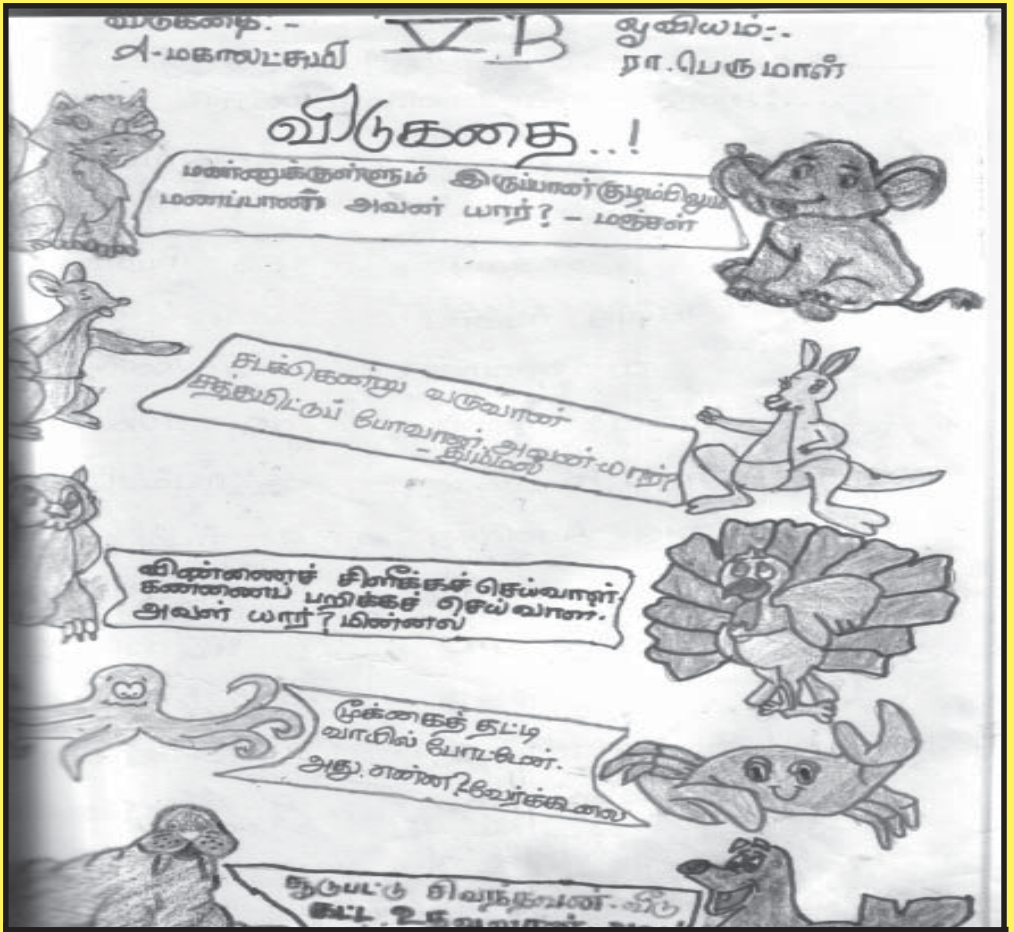 விடுகதை:-
A-மகாலட்சுமி
V B
ஓவியம்:-
ரா.பெருமாள்
விடுகதை..!
மண்ணுக்குள்ளும் இருப்பான்
மணப்பான் அவன் யார்? - மஞ்சள்
சடக்கென்று வருவான்
சத்தமிட்டுப் போவான் அவன் யார்?
விண்ணைச் சிளிக்கச் செய்வாள்,
கண்ணைப் பறிக்கச் செய்வாள்.
அவள் யார்? மின்னல்
மூக்கைத் தட்டி
வாயில் போட்டேன்.
அது என்ன? வேர்க்கடலை
சூடுபட்டு சிவந்தவன். வீடு
கட்ட